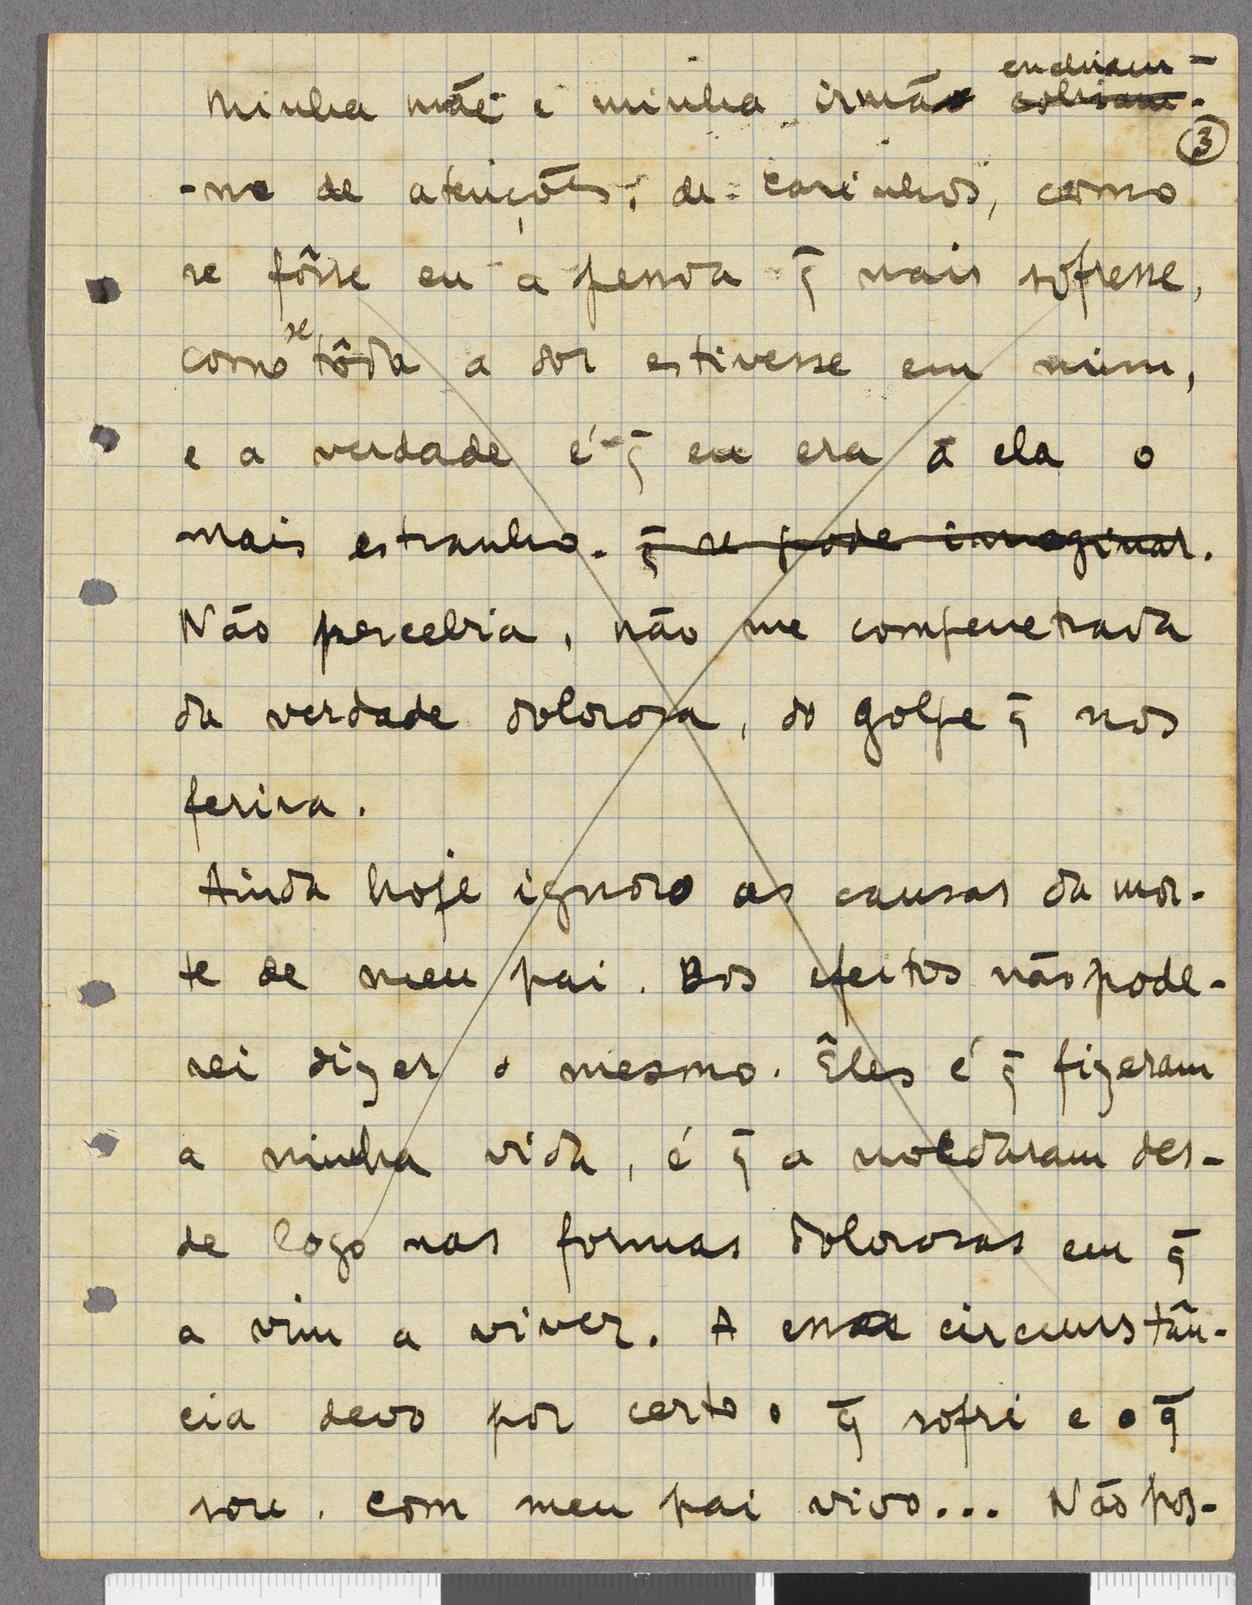 enchiam-
Minha mãe e minha irmã cobriam-
3
-me de atenções, de carinhos, como
se fôsse eu a pessoa q̄ mais sofresse,
como se tôda a dor estivesse em mim,
e a verdade é q̄ eu era a ela o
mais estranho. q̄ se pode imaginar.
Não percebia, não me compenetrava
da verdade dolorosa, do golpe q̄ nos
ferira.
Ainda hoje ignoro as causas da mor-
te de meu pai. Dos efeitos não pode-
rei dizer o mesmo. Êles é q̄ fizeram
a minha vida, é q̄ a moldaram des-
de logo nas formas dolorosas em q̄
a vim a viver. A essa circunstân-
cia devo por certo o q̄ sofri e o q̄
sou. Com meu pai vivo... Não pos-